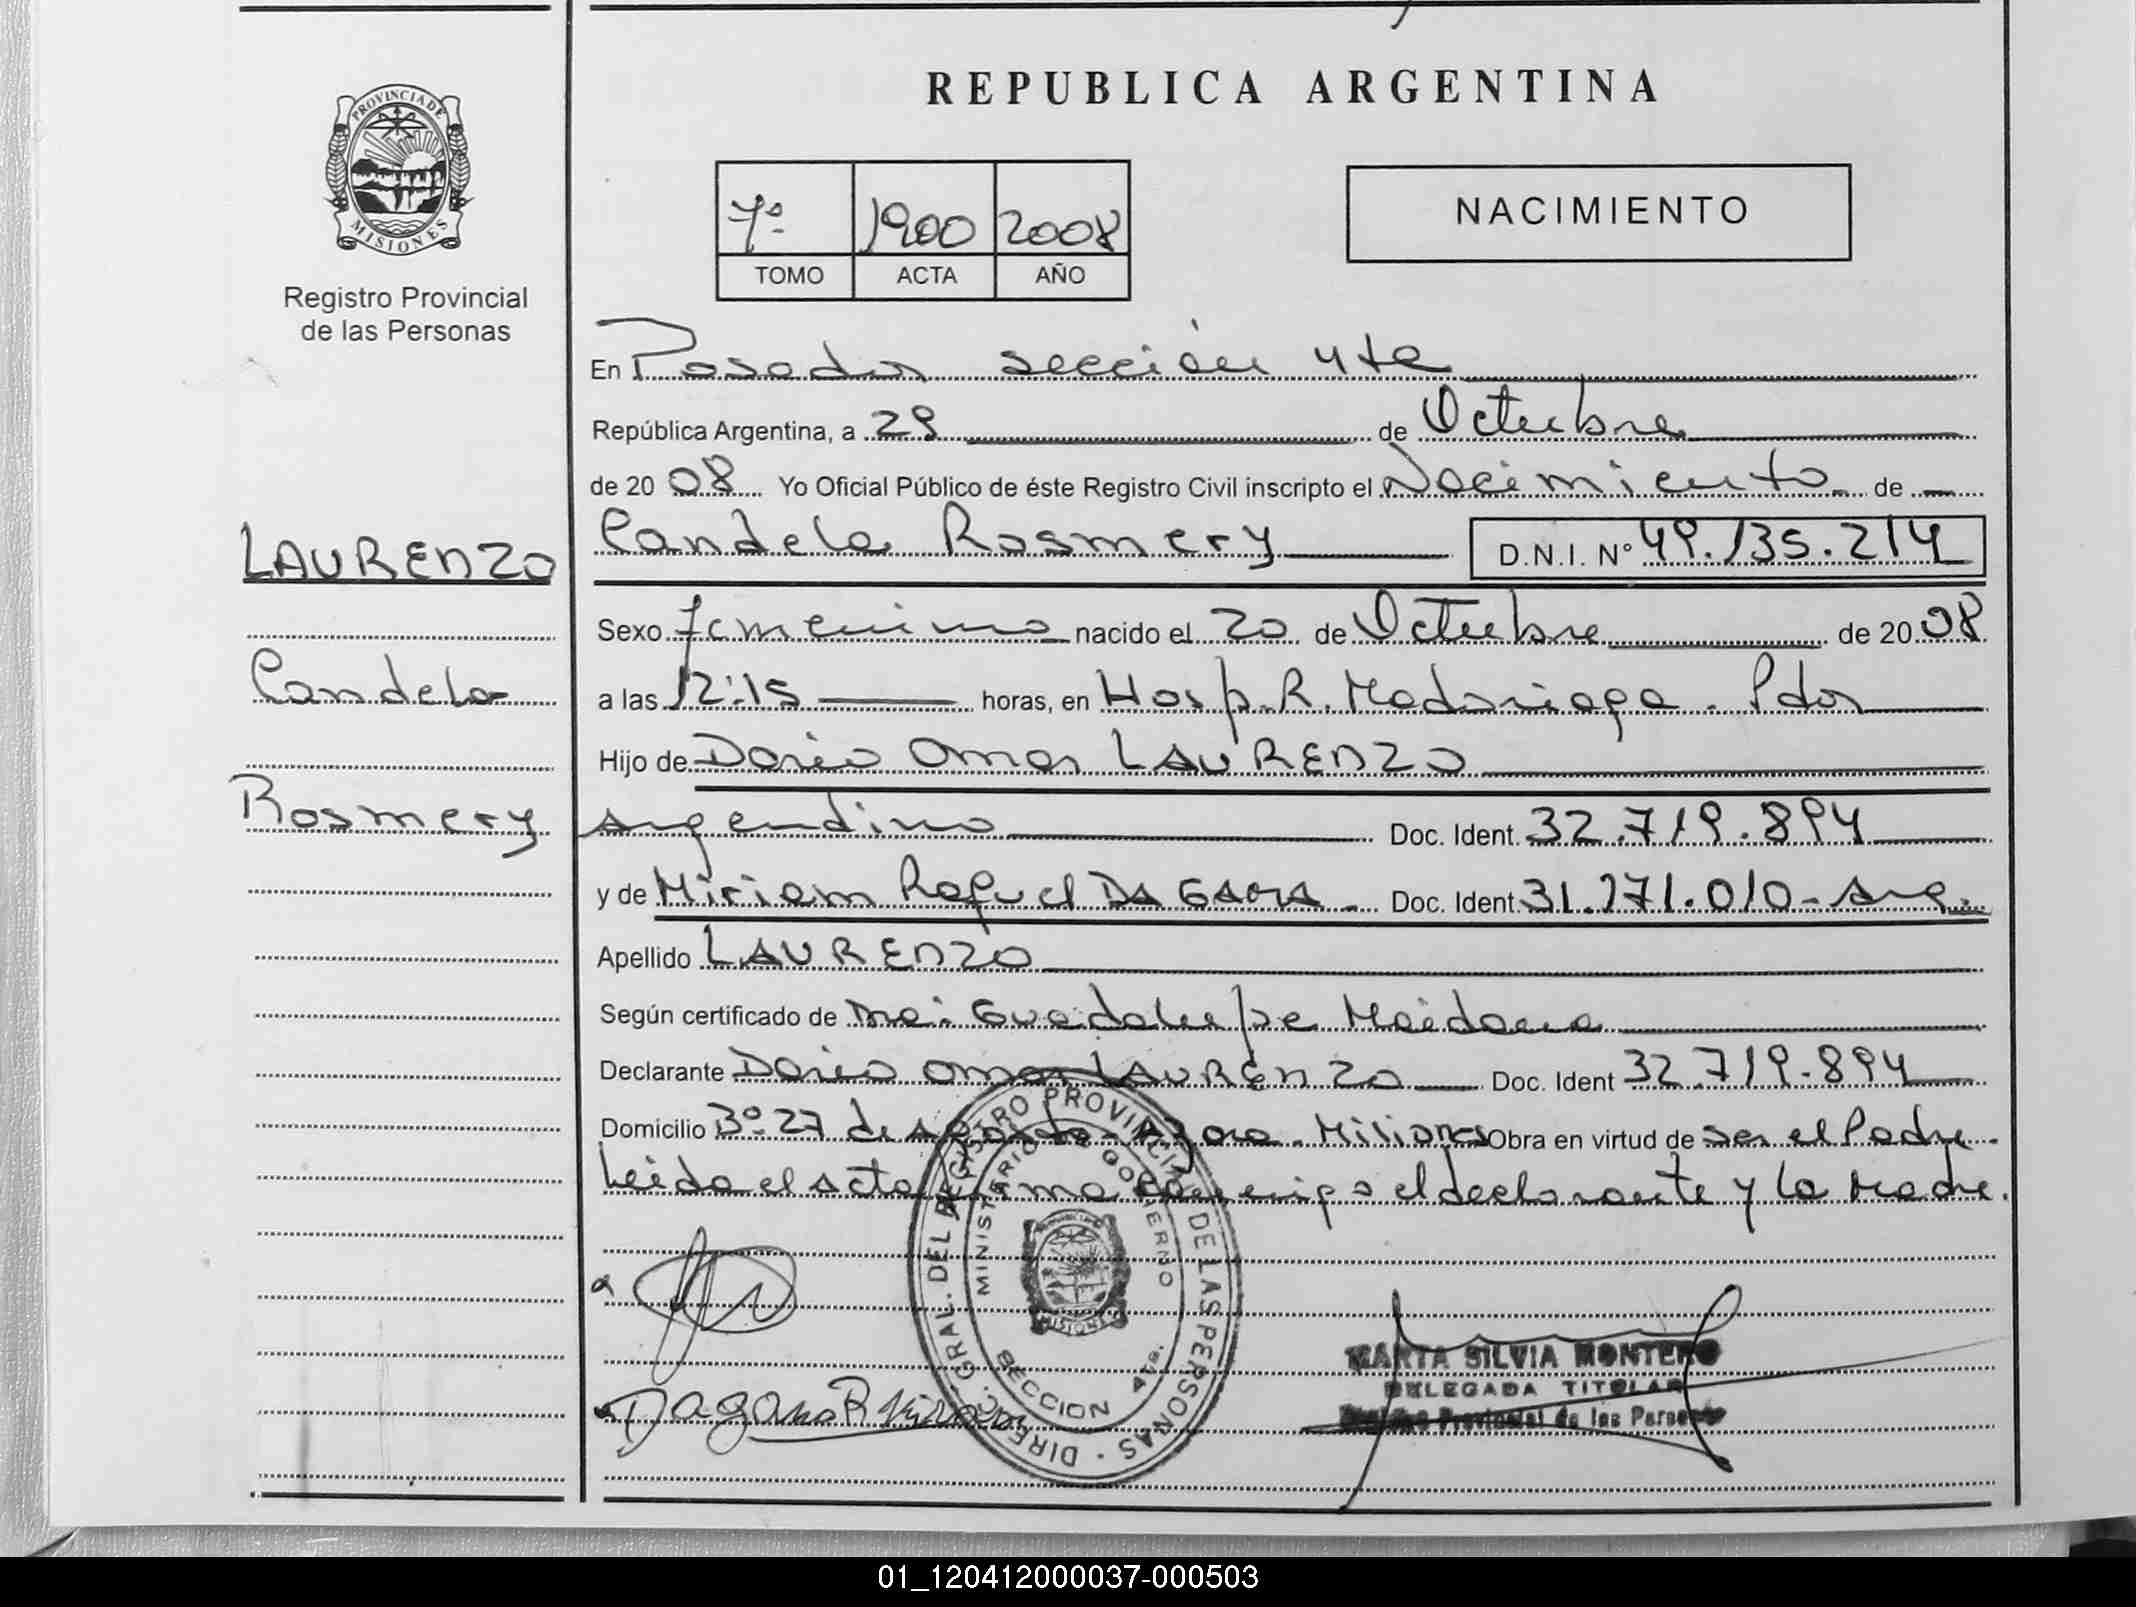 REPUBLICA ARGENTINA
PROVINCIA DE MISIONES
Registro Provincial
de las Personas
7º 1900 2008
TOMO ACTA AÑO
NACIMIENTO
En Posadas sección 4ta
República Argentina, a 29 de Octubre
de 2008 Yo Oficial Público de éste Registro Civil inscripto el Nacimiento de
LAURENZO
Candela
Rosmery
Candela Rosmery D.N.I. Nº 49.135.214
Sexo femenino nacido el 20 de Octubre de 2008
a las 12:15 horas, en Hosp. R. Madariaga. Pdas
Hijo de Dario Omar LAURENZO
argentino Doc. Ident. 32.719.894
y de Miriam Raquel DA GAMA Doc. Ident. 31.171.010 - Arg.
Apellido LAURENZO
Según certificado de Guadalupe Maidana
Declarante Dario Omar LAURENZO Doc. Ident 32.719.894
Domicilio Bº 27 de - Azara - Misiones Obra en virtud de ser el Padre.
Leida el acta firma conmigo el declarante y la Madre.
DIREC. GRAL. DEL REGISTRO PROVINCIAL DE LAS PERSONAS
MINISTERIO DE GOBIERNO
MISIONES
SECCION 4ta.
MARTA SILVIA MONTERO
DELEGADA TITULAR
Provincial de las Personas
01_120412000037-000503